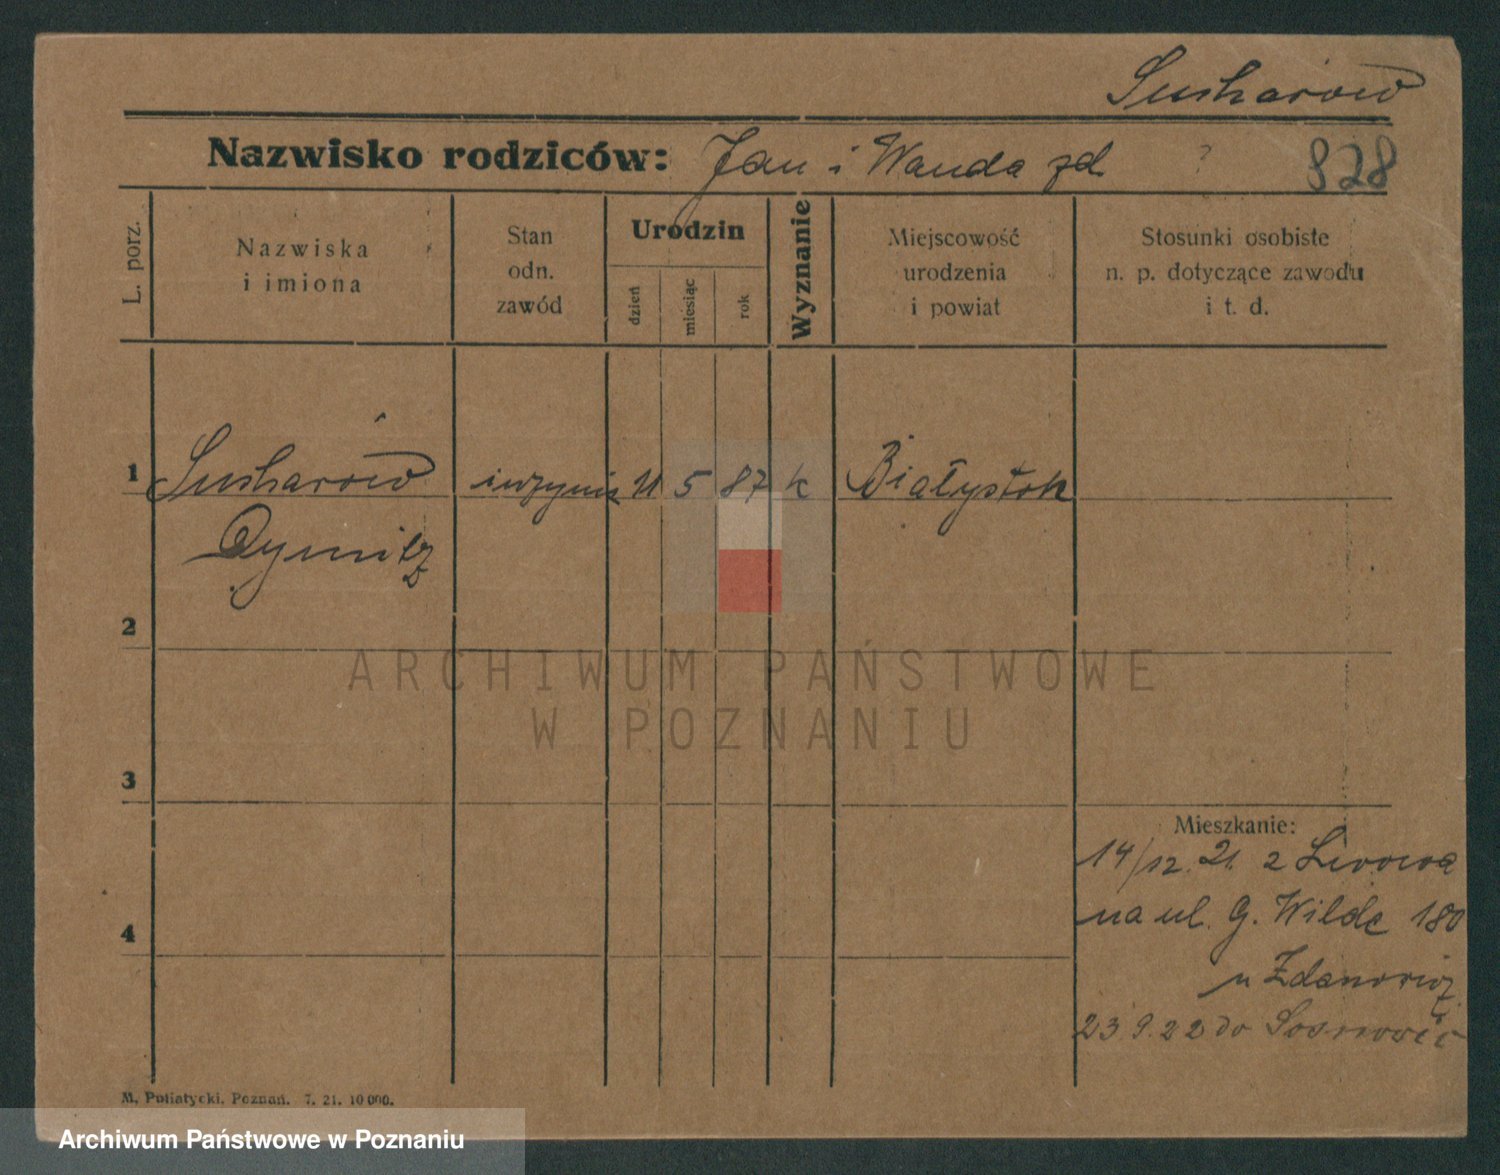 Sucharów
Nazwisko rodziców: Jan i Wanda zd. ? 828
L. porz.
Nazwiska
i imiona
Stan
odn.
zawód
Urodzin
dzień
miesiąc
rok
Wyznanie
Miejscowość
urodzenia
i powiat
Stosunki osobiste
n. p. dotyczące zawodu
i t. d.
1 Sucharów 5 87 k Białystok
Dymitz
2
3
Mieszkanie:
14/12. 21. z Lwowa
na ul. G. Wilde 180
4
u Zdanowicz
23.9.22 do Sosnowic
M. Putiatycki, Poznań. 7. 21. 10 000.
ARCHIWUM PAŃSTWOWE
W POZNANIU
Archiwum Państwowe w Poznaniu